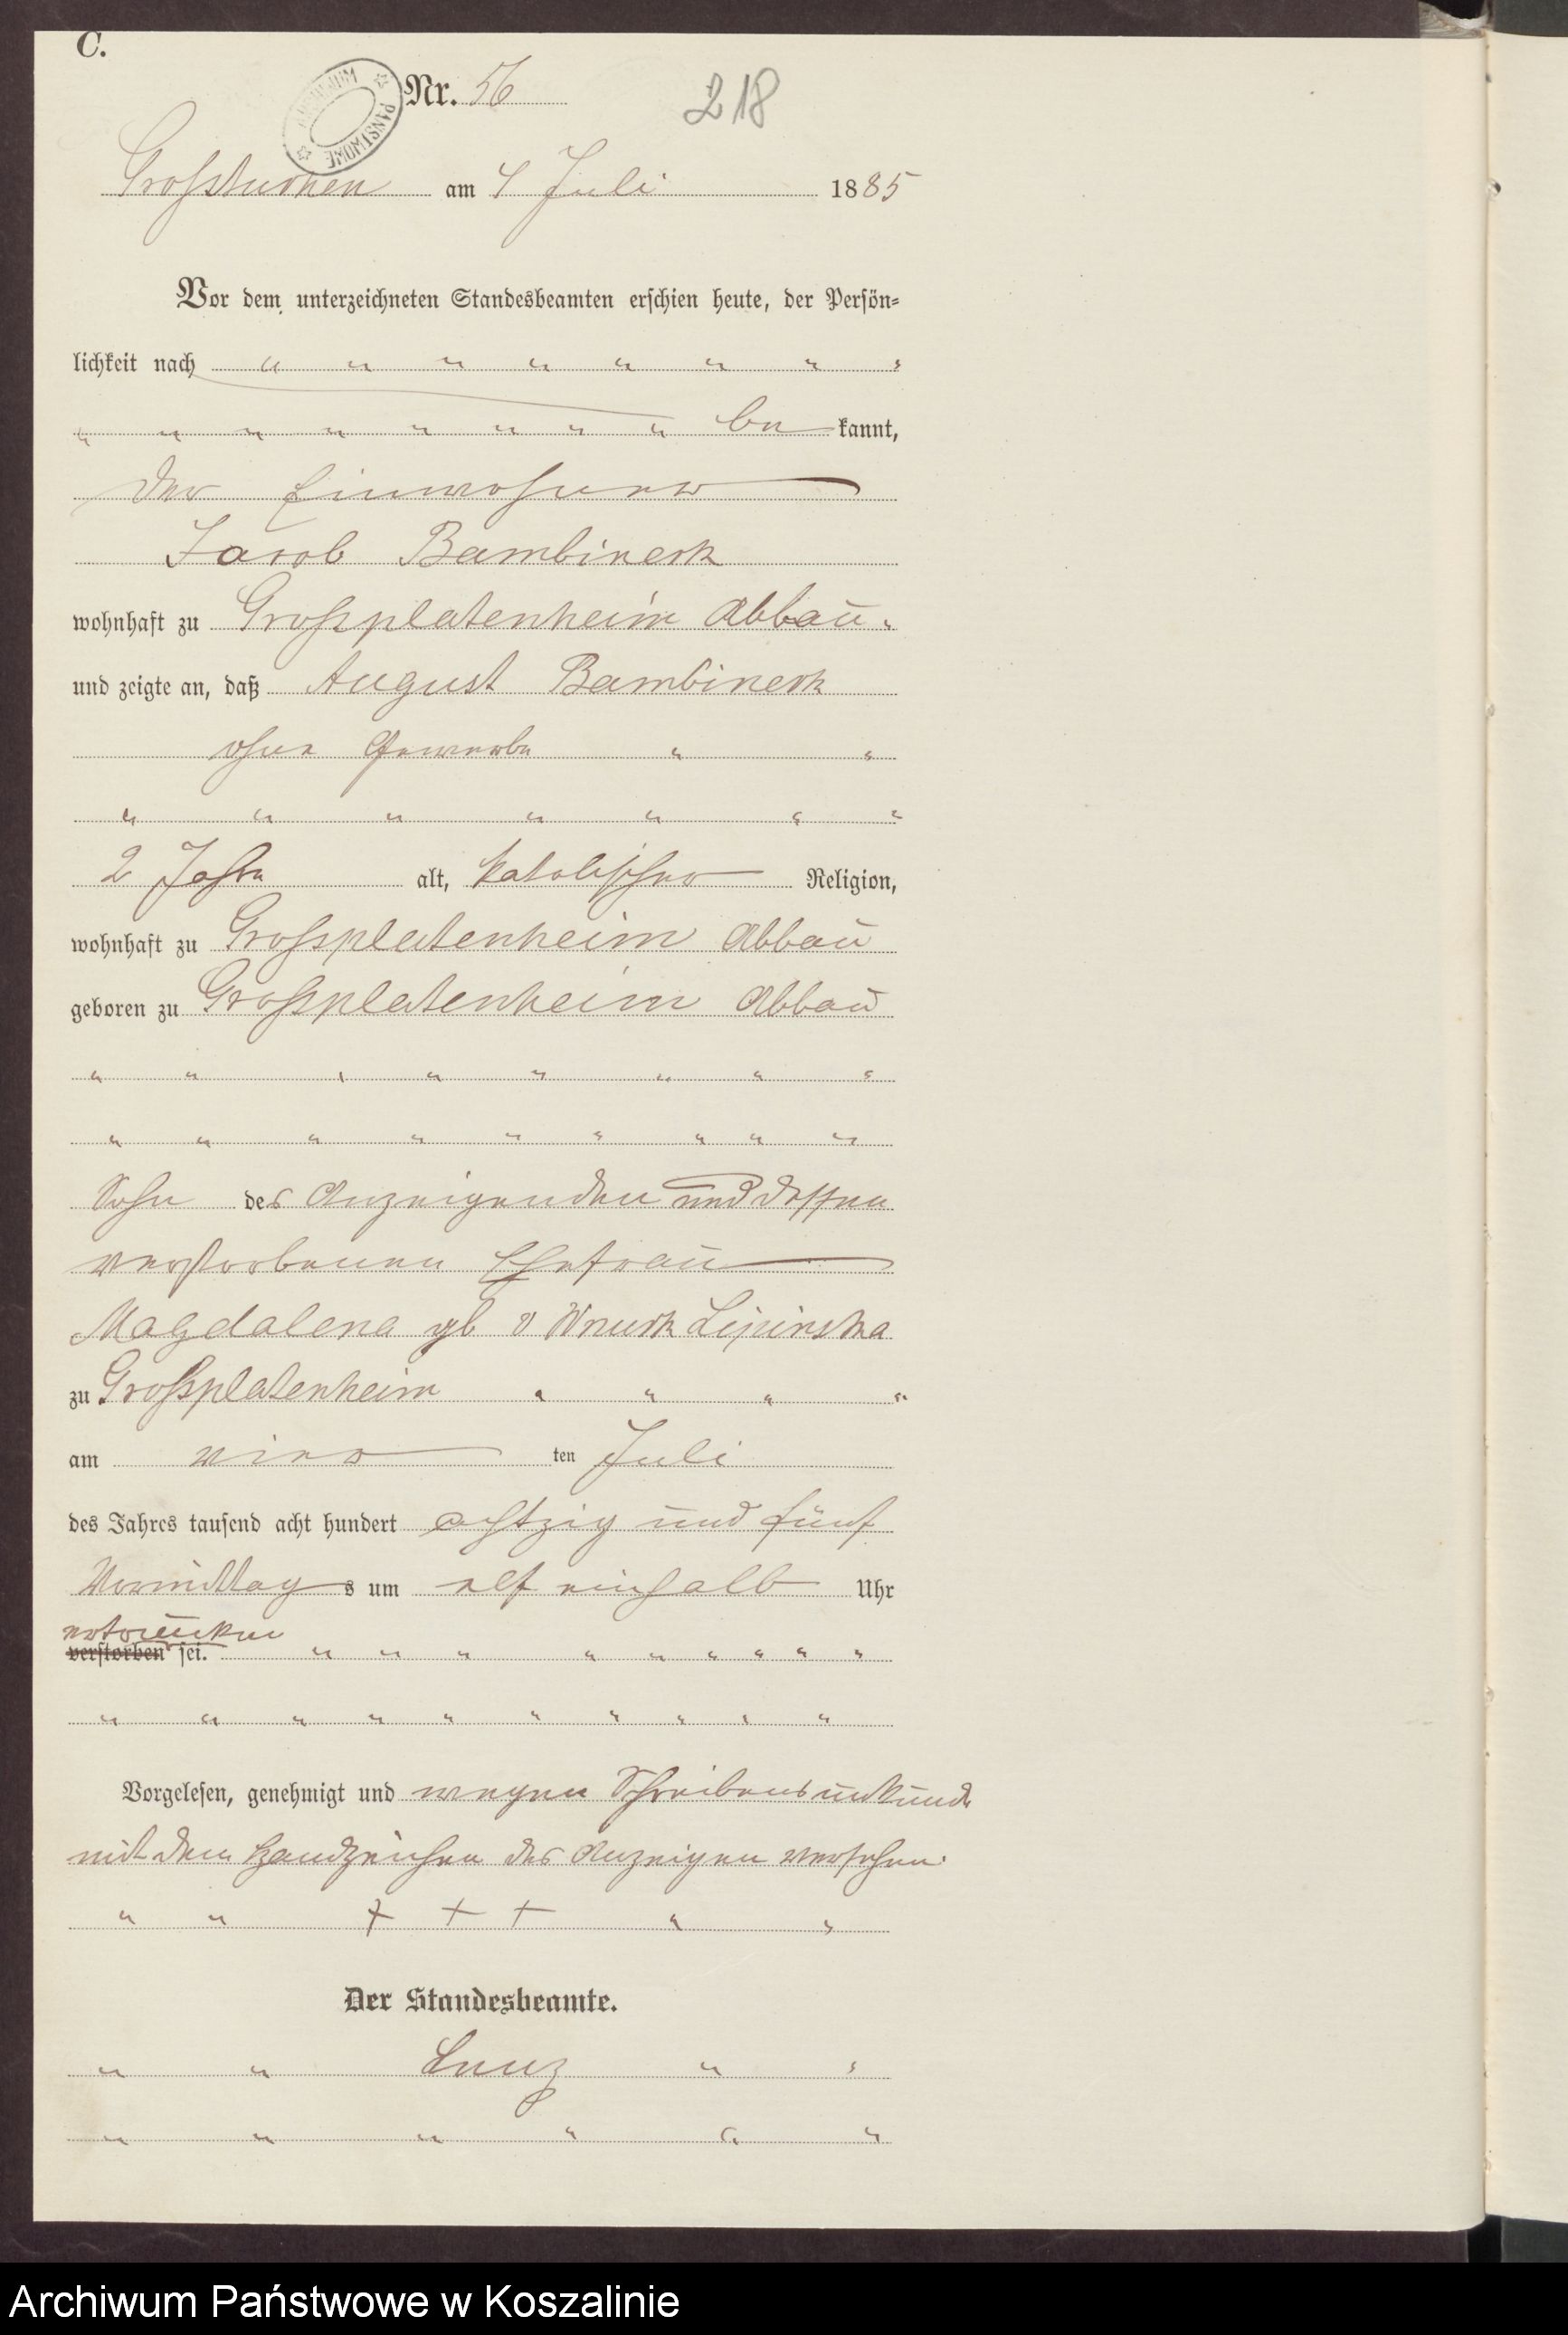 C.
ARCHIWUM PAŃSTWOWE
Nr. 56 218
Grosstuchen am 4 Juli 1885
Vor dem unterzeichneten Standesbeamten erschien heute, der Persön-
lichkeit nach " " " " " " " "
" " " " " " " " be kannt,
der Einwohner
Jacob Bambinek
wohnhaft zu Grossplatenheim Abbau.
und zeigte an, daß August Bambinek
ohne Gewerbe " "
" " " " " " "
2 Jahr alt, katolischer Religion,
wohnhaft zu Grossplatenheim Abbau
geboren zu Grossplatenheim Abbau
" " " " " " " "
" " " " " " " " "
Sohn des Anzeigenden und dessen
verstorbenen Ehefrau
Magdalena gb v Wnuck Lipinska
zu Grossplatenheim " " " "
am vier ten Juli
des Jahres tausend acht hundert achtzig und fünf
Vormittag s um elf einhalb Uhr
ertrunken
verstorben sei. " " " " " " " " "
" " " " " " " " " "
Vorgelesen, genehmigt und wegen Schreibensunkunde
mit dem Handzeichen des Anzeigen versehen.
" " + + + " "
Der Standesbeamte.
" " " "
" " " " " "
Archiwum Państwowe w Koszalinie